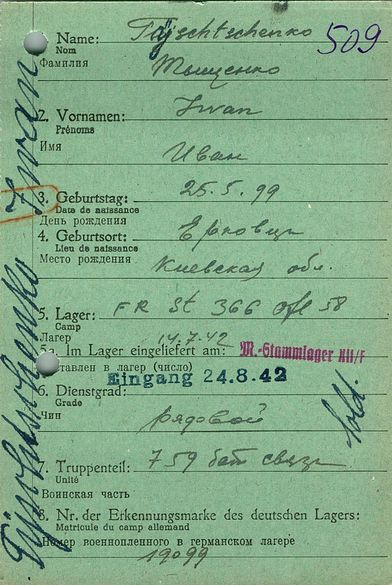 Name: Tyschtschenko 509
Nom
Фамилия Тыщенко
2. Vornamen: Iwan
Prénoms
Имя Иван
3. Geburtstag: 25.5.99
Date de naissance
День рождения
4. Geburtsort: Ерковцы
Lieu de naissance
Место рождения Киевская обл.
5. Lager: FR St 366 Ofl 58
Camp
Лагерь 14.7.42
5a. Im Lager eingeliefert am: M.-Stammlager XII/F
Доставлен в лагер (число)
Eingang 24.8.42
6. Dienstgrad:
Grade
Чин рядовой
Sold.
7. Truppenteil: 759 бат связи
Unité
Воинская часть
8. Nr. der Erkennungsmarke des deutschen Lagers:
Matricule du camp allemand
Номер военнопленного в германском лагере
19099
Iwan